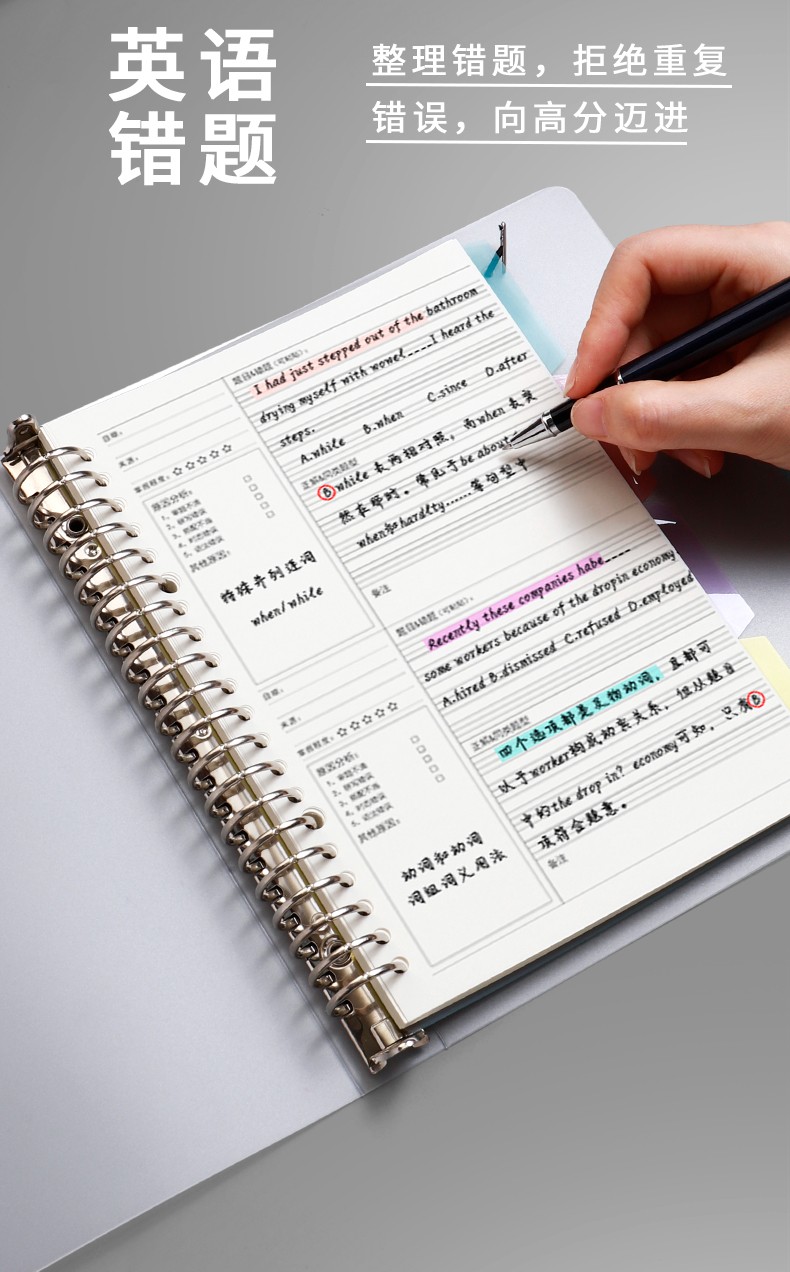 英语
错题
整理错题，拒绝重复
错误，向高分迈进
日期：
来源：
掌握程度：☆☆☆☆☆
原因分析：
1、审题不清
2、拼写错误
3、搭配不当
4、时态错误
5、语法错误
其他原因：
特殊并列连词
when/while
题目&错题（可粘贴）：
I had just stepped out of the bathroom
drying myself with wowel____I heard the
steps.
A.while B.when C.since D.after
正解&同类题型
B while 表两相对照，而when 表突
然在那时。常见于be about
when和hardlty......等句型中
备注
日期：
来源：
掌握程度：☆☆☆☆☆
原因分析：
1、审题不清
2、拼写错误
3、搭配不当
4、时态错误
5、语法错误
其他原因：
动词和动词
词组词义用法
题目&错题（可粘贴）：
Recently these companies habe____
some workers because of the dropin economy
A.hired B.dismissed C.refused D.employed
正解&同类题型
四个选项都是及物动词，且都可
以于worker构成动宾关系，但从题目
中的the drop in? economy可知，只有B
项符合题意。
备注